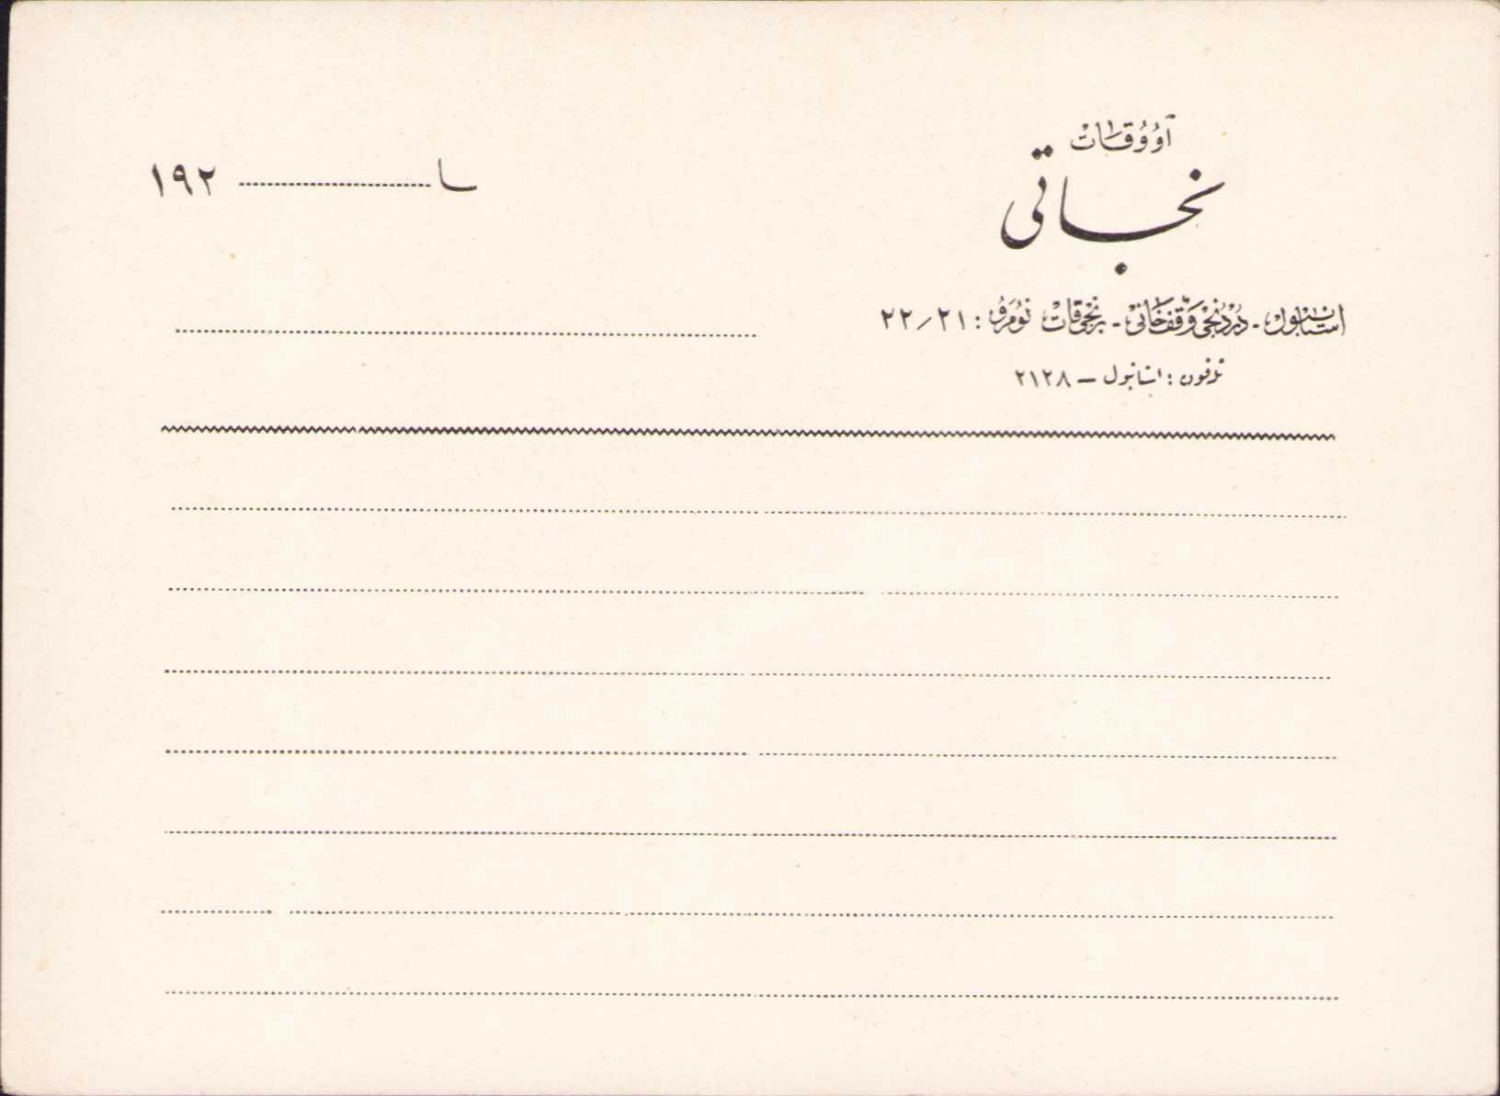 آووقات
نجاتی
استانبول - دردنجی وقف خانی - برنجی قات نومرو : ٢١/٢٢
تلفون : استانبول — ٢١٢٨
١٩٢